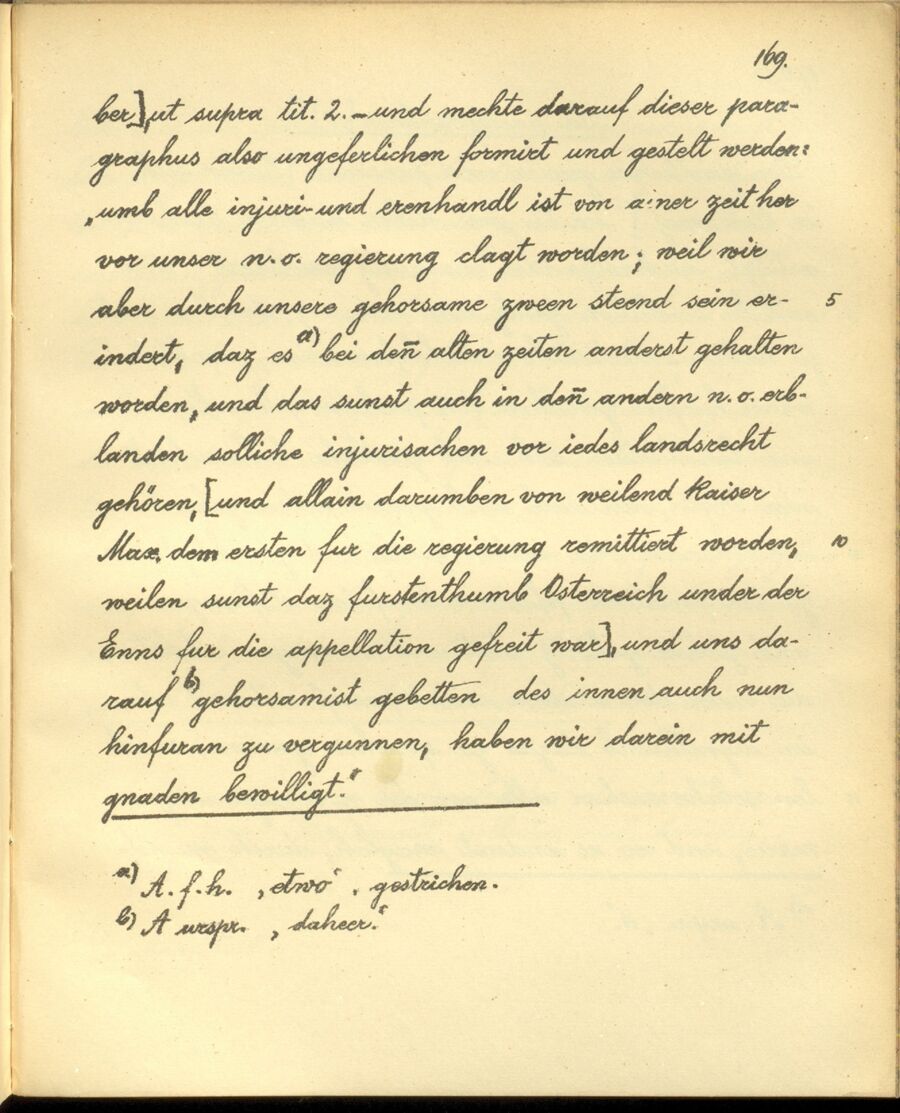 169.
ber], ut supra tit. 2. – und mechte darauf dieser para-
graphus also ungeferlichen formirt und gestelt werden:
„umb alle injuri- und erenhandl ist von ainer zeit her
vor unser n. o. regierung clagt worden; weil wir
aber durch unsere gehorsame zween steend sein er- 5
indert, daz es a) bei den̄ alten zeiten anderst gehalten
worden, und das sunst auch in den̄ andern n. o. erb-
landen solliche injurisachen vor iedes landsrecht
gehören, [und allain darumben von weilend Kaiser
Max. dem ersten fur die regierung remittiert worden, 10
weilen sunst daz furstenthumb Österreich under der
Enns fur die appellation gefreit war], und uns da-
rauf b) gehorsamist gebetten des innen auch nun
hinfuran zu vergunnen, haben wir darein mit
gnaden bewilligt.“
a) A. f. h. ‚etwo‘, gestrichen.
b) A urspr. ‚daheer.‘